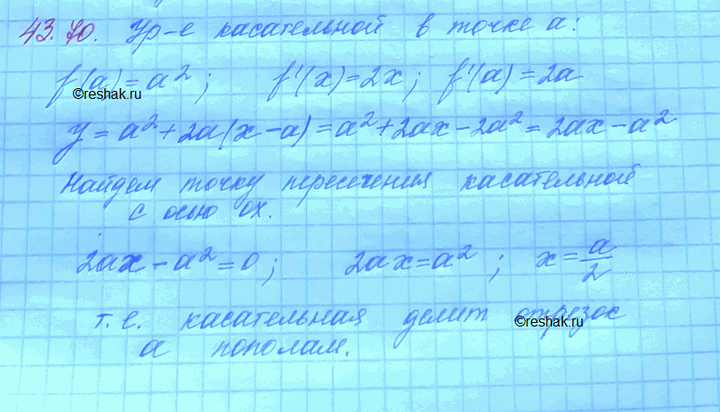 43.70. Ур-е касательной в точке a:
f(a)=a²; f'(x)=2x; f'(a)=2a
©reshak.ru
y=a²+2a(x-a)=a²+2ax-2a²=2ax-a²
Найдем точку пересечения касательной
с осью ох.
2ax-a²=0; 2ax=a²; x=a/2
т.е. касательная делит отрезок
©reshak.ru
a пополам.